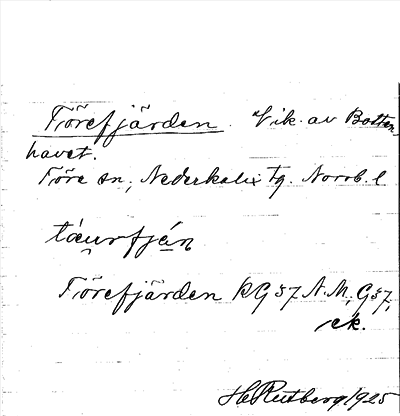 Törefjärden. Vik av Botten-
havet.
Töre sn, Nederkalix tg. Norrb. l
Törefjärden KG 57 A.M, G 57,
ek.
H Rutberg 1925